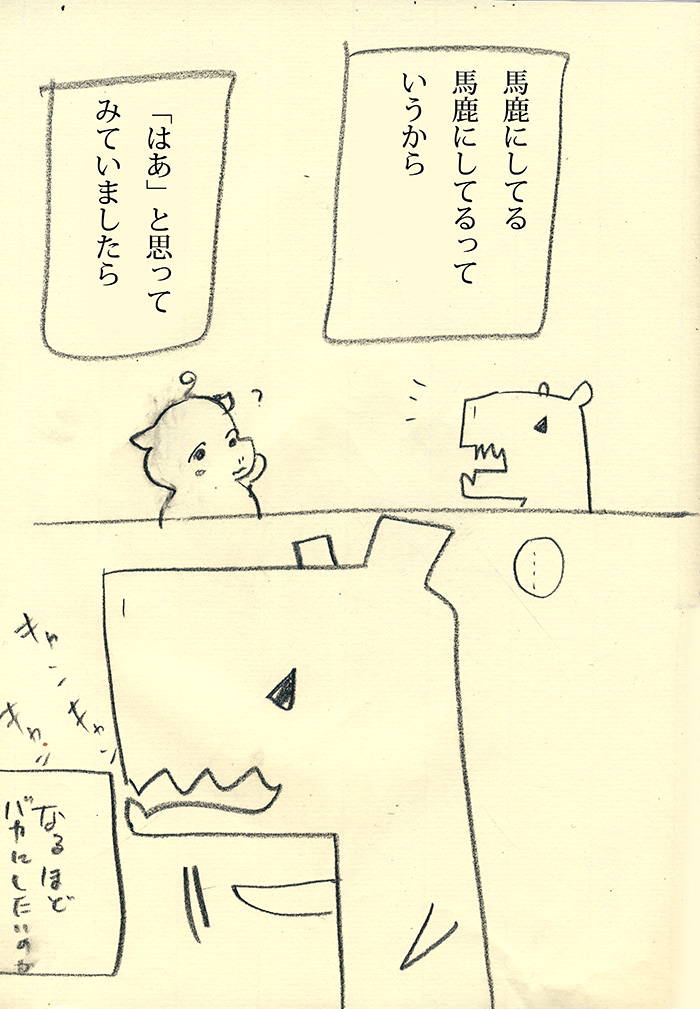 馬鹿にしてる
馬鹿にしてるって
いうから
「はあ」と思って
みていましたら
?
……
キャン
キャン
キャン
なるほど
バカにしたいのか